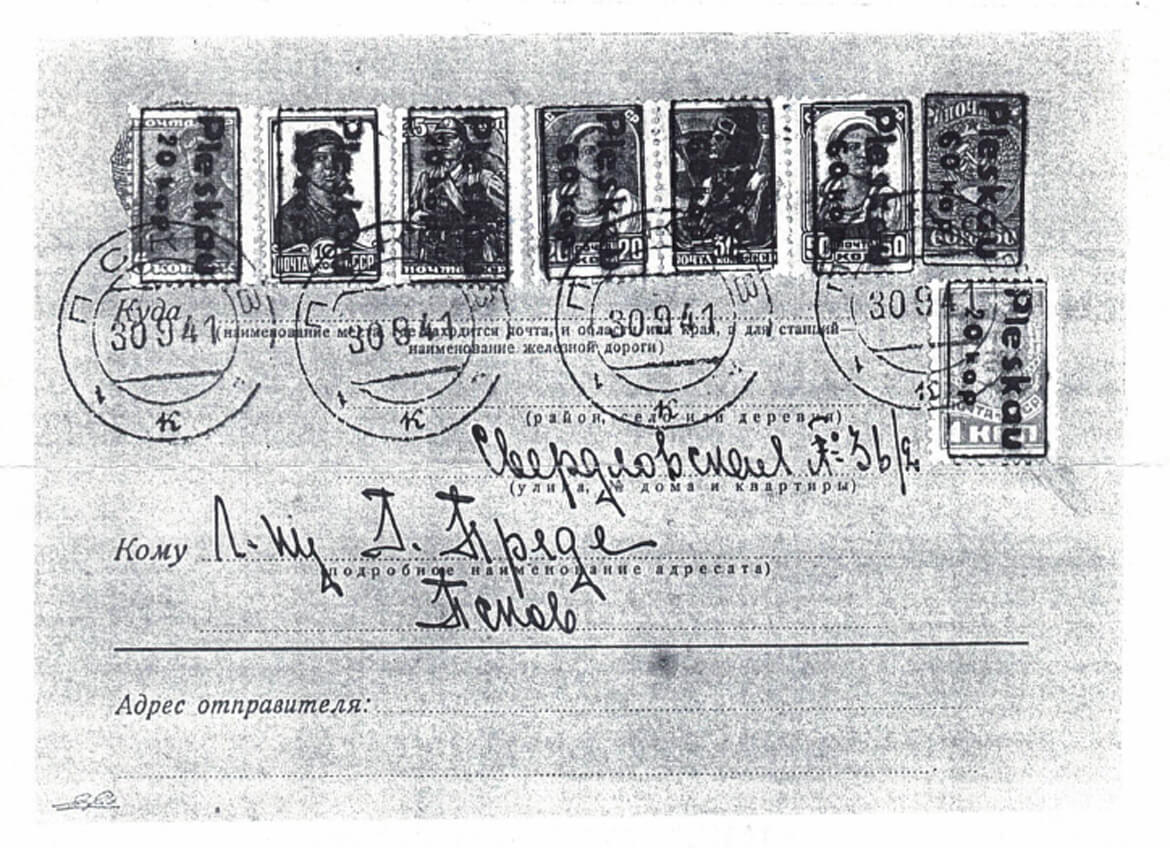 почта Pleskau 20 кор
ПОЧТА СССР
почта
Pleskau 60 кор 20
почта 30
Pleskau 60 кор 50 почта 50
Pleskau 60 кор
Pleskau 20 кор
ПОЧТА 1 КОП
30 9 41 к
30 9 41 к
30 9 41 к
30 9 41 к
Куда
(наименование места, где находится почта, и область или край, а для станций—
наименование железной дороги)
(район, село или деревня)
Свердловская № 36/2
(улица, № дома и квартиры)
Кому Г. Преде
(подробное наименование адресата)
Псков
Адрес отправителя: